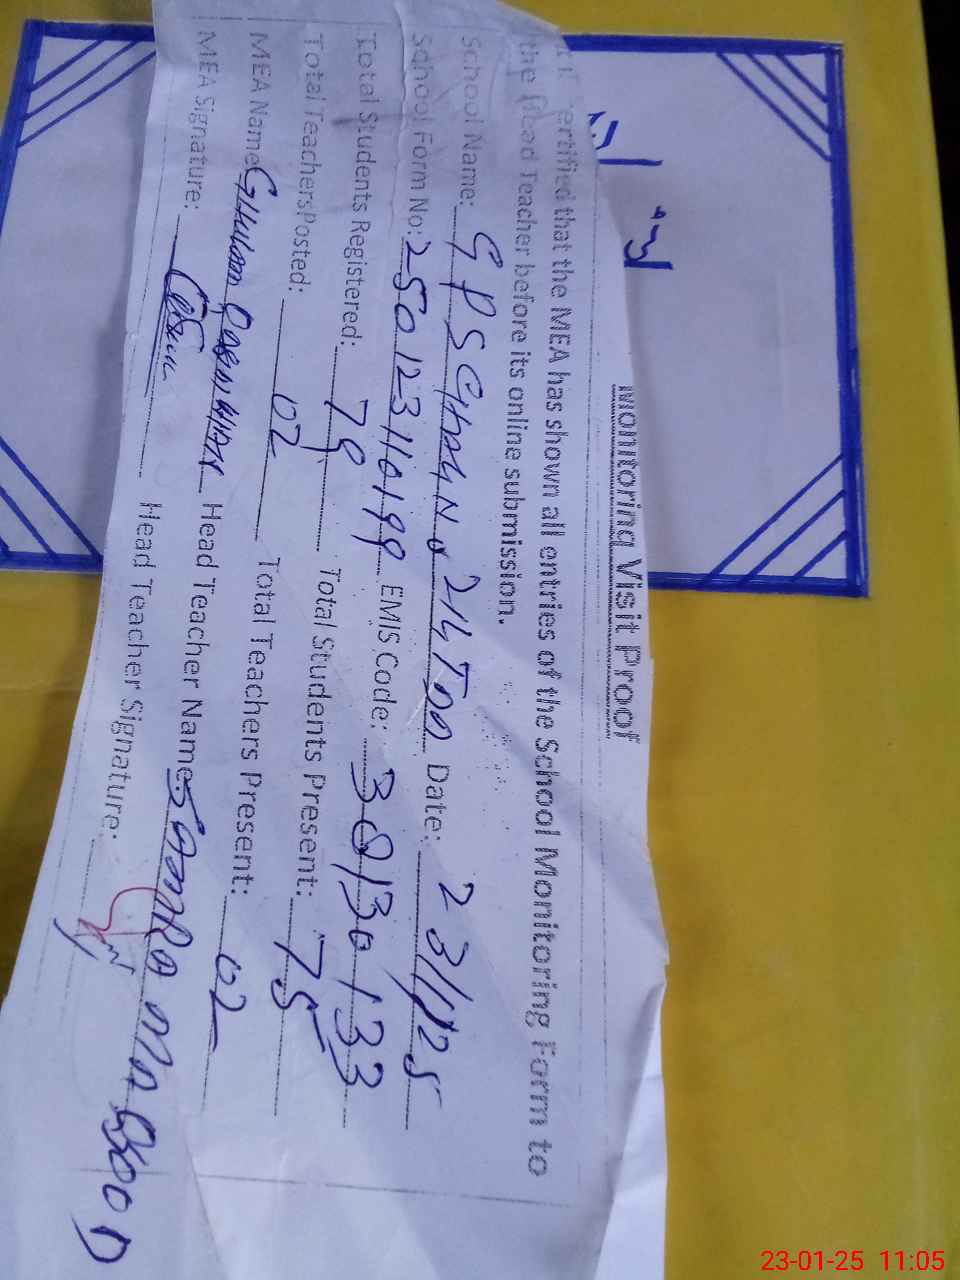 Monitoring Visit Proof
It is certified that the MEA has shown all entries of the School Monitoring Form to
the Head Teacher before its online submission.
School Name: GPS CHAH No 214 TDA Date: 23/1/25
School Form No: 250123110199 EMIS Code: 38130133
Total Students Registered: 79 Total Students Present: 75
Total Teachers Posted: 02 Total Teachers Present: 02
MEA Name: GHulam Head Teacher Name: SamRa MaSooD
MEA Signature: Head Teacher Signature:
23-01-25 11:05